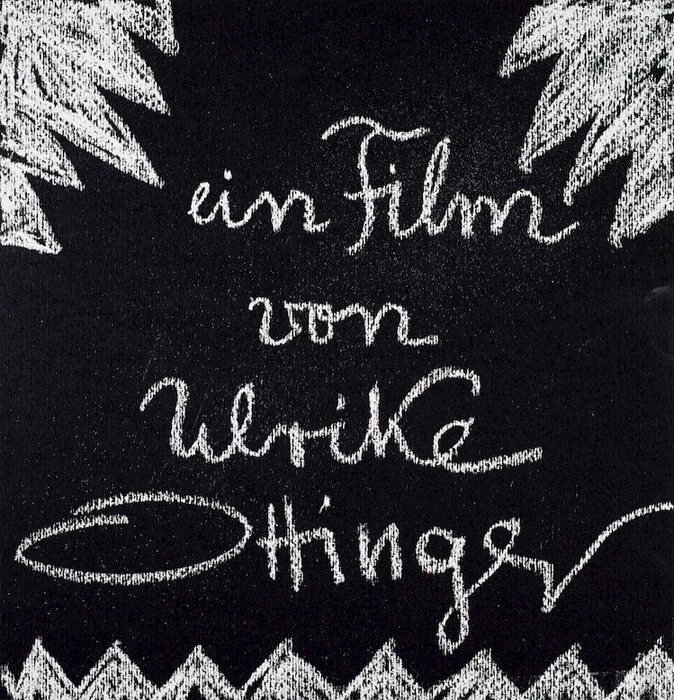 ein Film
von
Ulrike
Ottinger